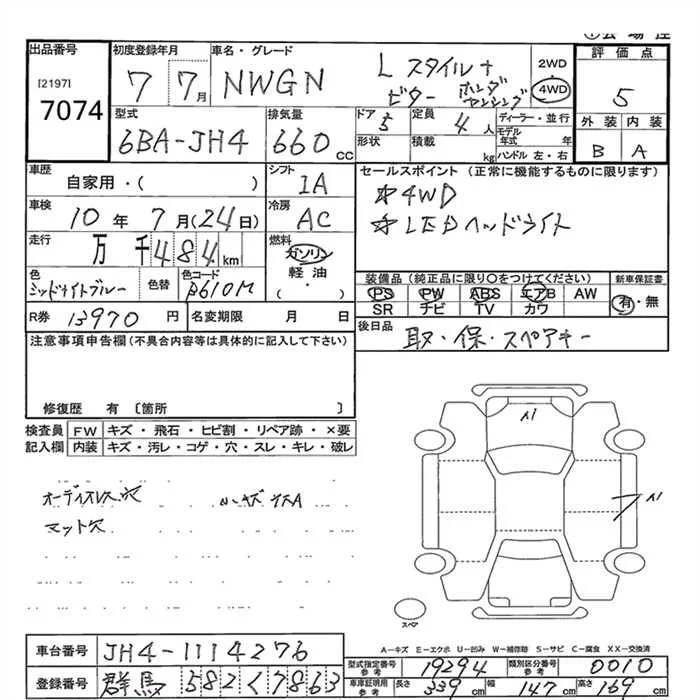 出品番号
[2197]
7074
初度登録年月
7 7月
車名・グレード
NWGN
L スタイル+
ビター ホンダセンシング
2WD
4WD
評価点
5
外装 内装
B A
型式
6BA-JH4
排気量
660 CC
ドア
5
形状
定員
4 人
積載
kg
ディーラー・並行
モデル年式 年
ハンドル 左・右
車歴
自家用・( )
シフト
IA
車検
10年 7月(24日)
冷房
AC
走行
万 千 484 km
燃料
ガソリン
軽油・
( )
色
ミッドナイトブルー
色替
色コード
B610M
R券 13970 円
名変期限 月 日
セールスポイント (正常に機能するものに限ります)
☆4WD
☆LEDヘッドライト
装備品(純正品に限り○をつけてください)
PS PW ABS エアB AW
SR チビ TV カワ
新車保証書
有・無
後日品
取・保・スペアキー
注意事項申告欄(不具合内容等は具体的に記入して下さい)
修復歴 有〔箇所 〕
検査員記入欄
FW キズ・飛石・ヒビ割・リペア跡・×要
内装 キズ・汚レ・コゲ・穴・スレ・キレ・破レ
オーディオレス穴
小キズ
マット穴
A1
A1
スペア
A-キズ E-エクボ U-凹み W-補修跡 S-サビ C-腐食 XX-交換済
車台番号 JH4-1114276
登録番号 群馬 582く7863
型式指定番号 参考 19294
類別区分番号 参考 0010
車庫証明用 参考 長さ 339 cm 幅 147 cm 高さ 169 cm